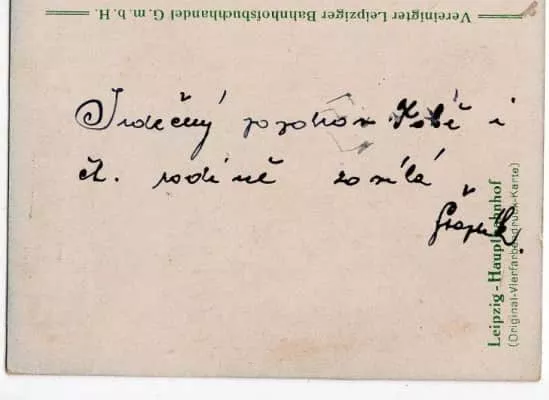 Vereinigter Leipziger Bahnhofsbuchhandel G. m. b. H.
Srdečný pozdrav Tobě i
ct. rodině zasílá
Leipzig - Hauptbahnhof
(Original-Vierfarbendruck-Karte)